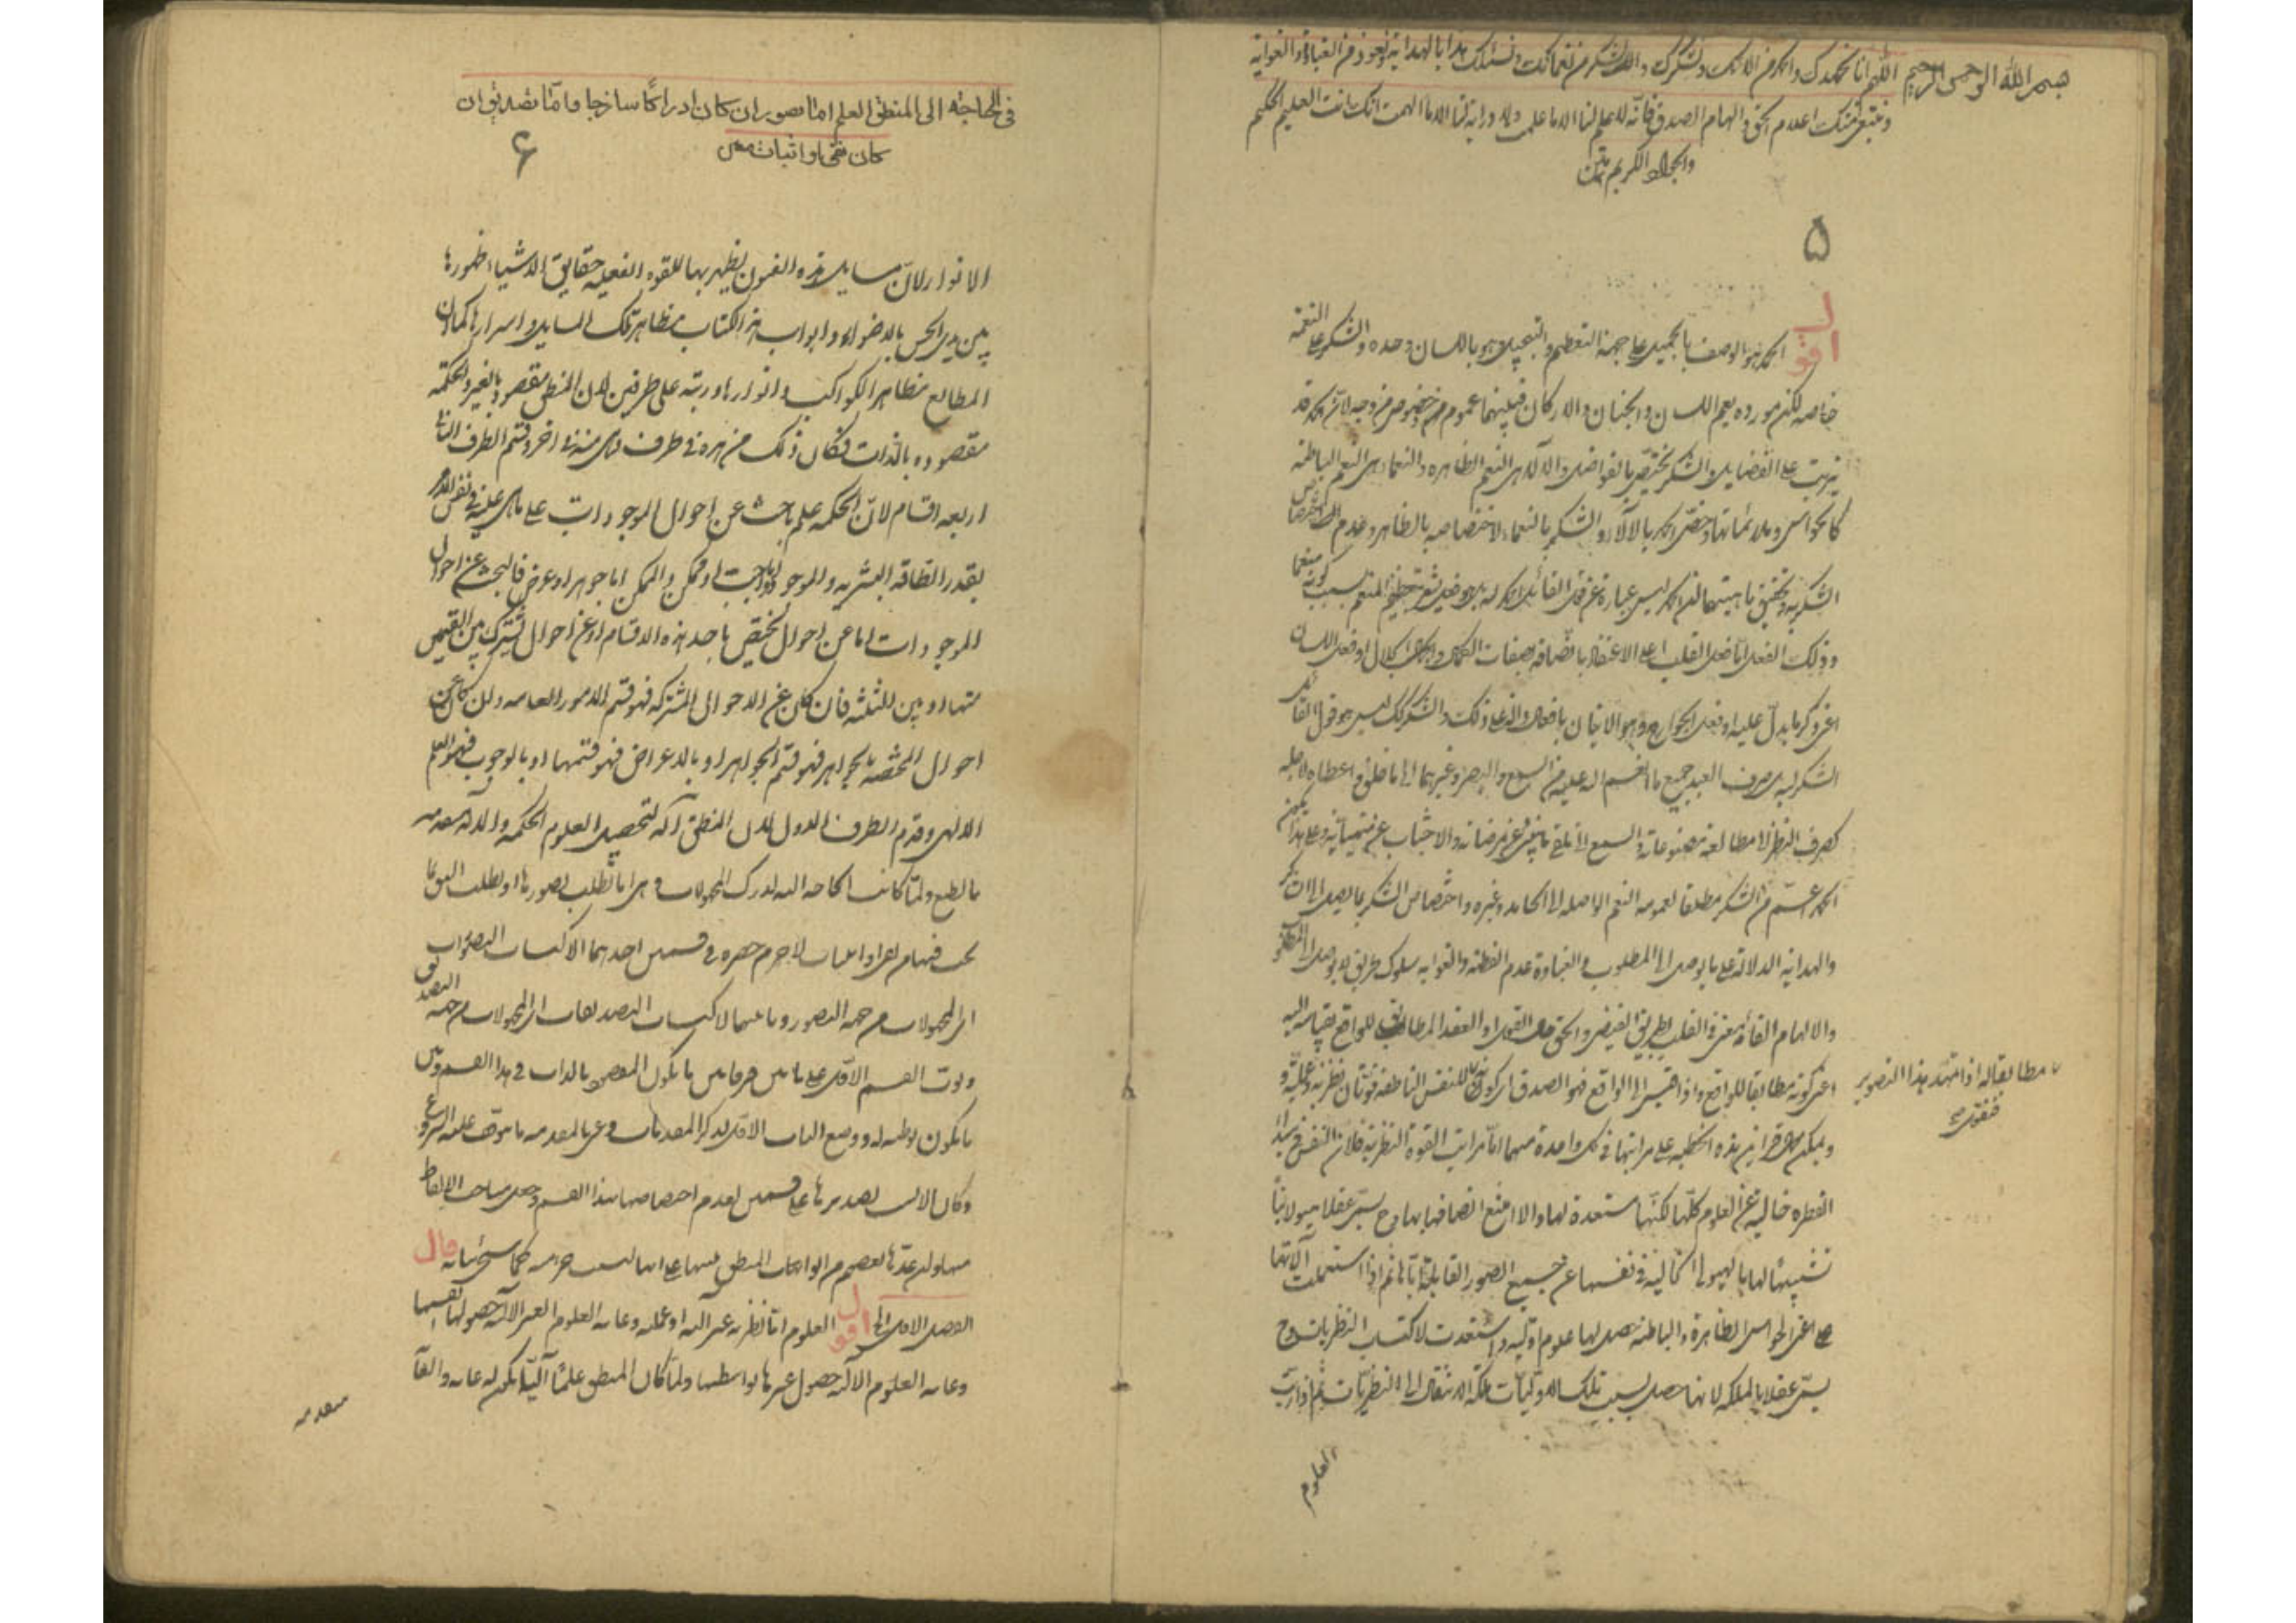 بسم الله الرحمن الرحيم اللهم انا نحمدك والحمد من الائك ونشكرك والشكر من نعمائك ونسئلك هدايا الهداية ونعوذ من الغباوة والغواية
ونبتغي منك اعلام الحق والهام الصدق فانه لا علم لنا الا ما علمت ولا دراية لنا الا ما الهمت انك انت العليم الحكيم
والجواد الكريم
۵
اقول
الحمد هو الوصف بالجميل على جهة التعظيم والتبجيل وهو باللسان وحده والشكر على النعمة
خاصه لكن مورده يعم اللسان والجنان والاركان فبينهما عموم وخصوص من وجه لان الحمد قد
يترتب على الفضايل والشكر يختص بالفواضل والالاء هى النعم الظاهره والنعماء هى النعم الباطنه
كالحواس وملائماتها وخص الحمد بالآلاء والشكر بالنعماء لاختصاصه بالظاهر وعدم اختصاص
الشكر به وتحقيق ماهيتهما ان الحمد ليس عبارة عن قول القائل الحمد لله بل هو فعل يشعر بتعظيم المنعم بسبب كونه منعما
وذلك الفعل اما فعل القلب اعنى الاعتقاد باتصافه بصفات الكمال والجلال او فعل اللسان
اعنى ذكر ما يدل عليه او فعل الجوارح وهو الاتيان بافعال دالة على ذلك والشكر كذلك ليس هو قول القائل
الشكر لله بل صرف العبد جميع ما انعم الله عليه من السمع والبصر وغيرهما الى ما خلق واعطاه لاجله
كصرف النظر الى مطالعة مصنوعاته والسمع الى تلقى ما ينبئ عن مرضاته والاجتناب عن منهياته وعلى هذا يكون
الحمد اعم من الشكر مطلقا لعمومه النعم الواصله الى الحامد وغيره واختصاص الشكر بما يصل الى الشاكر
والهداية الدلالة على ما يوصل الى المطلوب والغباوة عدم الفطنة والغواية سلوك طريق لا يوصل الى المطلوب
والالهام القاء معنى فى القلب بطريق الفيض والحق هو القول او العقد المطابق للواقع بقياسه اليه
اعنى كونه مطابقا للواقع واذا قيس الى الواقع فهو الصدق اى كونه للنفس الناطقه قوتان نظرية وعملية و
مطابقا له اذا تمهد هذا التصوير
فنقول
ويمكن حمل قراين هذه الخطبه على مراتبها فى كل واحدة منهما اما مراتب القوة النظرية فلان النفس فى مبدأ
الفطره خالية عن العلوم كلها لكنها مستعدة لها والا امتنع اتصافها بها وح يسمى عقلا هيولانيا
تشبيها لها بالهيولى الخالية فى نفسها عن جميع الصور القابلة اياها ثم اذا استعملت آلاتها
اعنى الحواس الظاهرة والباطنه حصل لها علوم اولية واستعدت لاكتساب النظريات وح
يسمى عقلا بالملكه لانها حصل بسبب تلك الاوليات ملكة الانتقال الى النظريات ثم اذا رتبت
العلوم
فى الحاجة الى المنطق العلم اما تصور ان كان ادراكا ساذجا واما تصديق ان
كان نفى او اثبات
۶
الانوار لان مسايل هذه الفنون يظهر بها للقوه العقليه حقايق الاشياء ظهورها
بين يدى الحس بالاضواء وابواب هذا الكتاب مظاهر تلك المسايل واسرارها كما ان
المطالع مظاهر الكواكب وانوارها ورتبه على طرفين لان المنطق مقصود بالغير والحكمة
مقصوده بالذات فكان ذلك من هره فى طرف وهى منه فى اخر وقسم الطرف الثانى
اربعه اقسام لان الحكمه علم باحث عن احوال الموجودات على ما هى عليه فى نفس الامر
بقدر الطاقه البشريه والموجود اما واجب او ممكن والممكن اما جوهر او عرض فالبحث عن احوال
الموجودات اما عن احوال يختص باحد هذه الاقسام او عن احوال يشترك بين القسمين
منها او بين الثلثه فان كان عن الاحوال المشتركه فهو قسم الامور العامه وان كان عن
احوال المختصه بالجواهر فهو قسم الجواهر او بالاعراض فهو قسمها او بالوجوب فهو العلم
الالهى وقدم الطرف الاول لان المنطق آلة لتحصيل العلوم الحكمه والاله مقدمه
بالطبع ولما كانت الحاجه اليه لدرك المجهولات وهى اما لطلب تصورها او لطلب
لا جرم حصره فى قسمين احدهما الاكتساب التصورات
اى المجهولات من جهة التصور وثانيهما لاكتساب التصديقات اى المجهولات من جهة التصديق
وبوب القسم الاول على بابين فى هذا القسم
ما يكون توطئه له ووضع الباب الاول لذكر المقدمات وعنى بالمقدمه ما يتوقف عليه الشروع
وكان الانسب تصديرها على قسمين لعدم اختصاصها بهذا القسم وجعل مباحث الالفاظ
كما سيجئ بيانه قال
الفصل الاول الى اقول العلوم اما نظريه غير آليه او عمليه وغاية العلوم الغير الآليه حصولها انفسها
وغاية العلوم الاليه حصول غيرها بواسطتها ولما كان المنطق علما آليا يكون له غايه
مقدمه